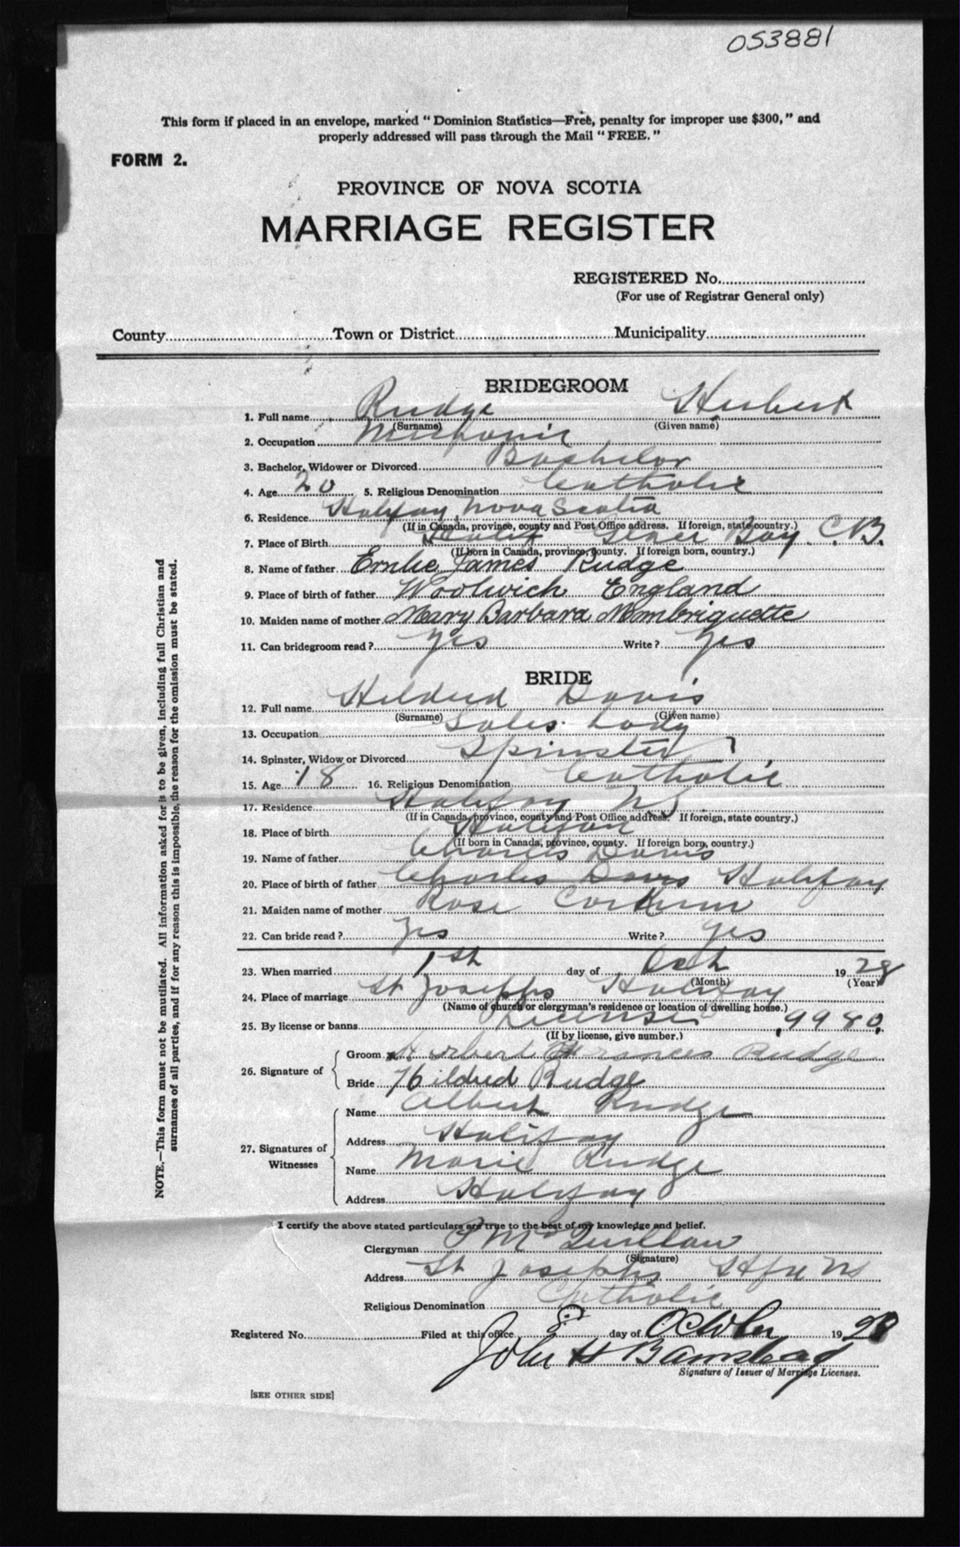 053881
This form if placed in an envelope, marked "Dominion Statistics—Free, penalty for improper use $300," and
properly addressed will pass through the Mail "FREE."
FORM 2.
PROVINCE OF NOVA SCOTIA
MARRIAGE REGISTER
REGISTERED No.
(For use of Registrar General only)
County Town or District Municipality
BRIDEGROOM
1. Full name Rudge Herbert
(Surname) (Given name)
2. Occupation Mechanic
3. Bachelor, Widower or Divorced Bachelor
4. Age 20 5. Religious Denomination Catholic
6. Residence Halifax Nova Scotia
(If in Canada, province, county and Post Office address. If foreign, state country.)
7. Place of Birth Glace Bay C.B.
(If born in Canada, province, county. If foreign born, country.)
8. Name of father Emile James Rudge
9. Place of birth of father Woolwich England
10. Maiden name of mother Mary Barbara Mombriquette
11. Can bridegroom read? Yes Write? Yes
BRIDE
12. Full name Hildred Davis
(Surname) (Given name)
13. Occupation Sales Lady
14. Spinster, Widow or Divorced Spinster
15. Age 18 16. Religious Denomination Catholic
17. Residence Halifax NS
(If in Canada, province, county and Post Office address. If foreign, state country.)
18. Place of birth Halifax
(If born in Canada, province, county. If foreign born, country.)
19. Name of father Charles Davis
20. Place of birth of father Charles Davis Halifax
21. Maiden name of mother Rose Corkum
22. Can bride read? Yes Write? Yes
23. When married 1st day of Oct 1928
(Month) (Year)
24. Place of marriage St Josephs Halifax
(Name of church or clergyman's residence or location of dwelling house.)
25. By license or banns License 9980
(If by license, give number.)
26. Signature of
Groom x Herbert Frances Rudge
Bride Hildred Rudge
27. Signatures of Witnesses
Name Albert Rudge
Address Halifax
Name Marie Rudge
Address Halifax
I certify the above stated particulars are true to the best of my knowledge and belief.
Clergyman McQuillan
(Signature)
Address St Josephs Hfx NS
Religious Denomination Catholic
Registered No. Filed at this office 8 day of October 1928
John H Barnstead
Signature of Issuer of Marriage Licenses.
[SEE OTHER SIDE]
NOTE.—This form must not be mutilated. All information asked for is to be given, including full Christian and
surnames of all parties, and if for any reason this is impossible, the reason for the omission must be stated.